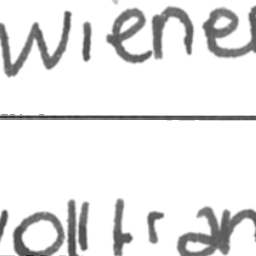 Wiene
volltran